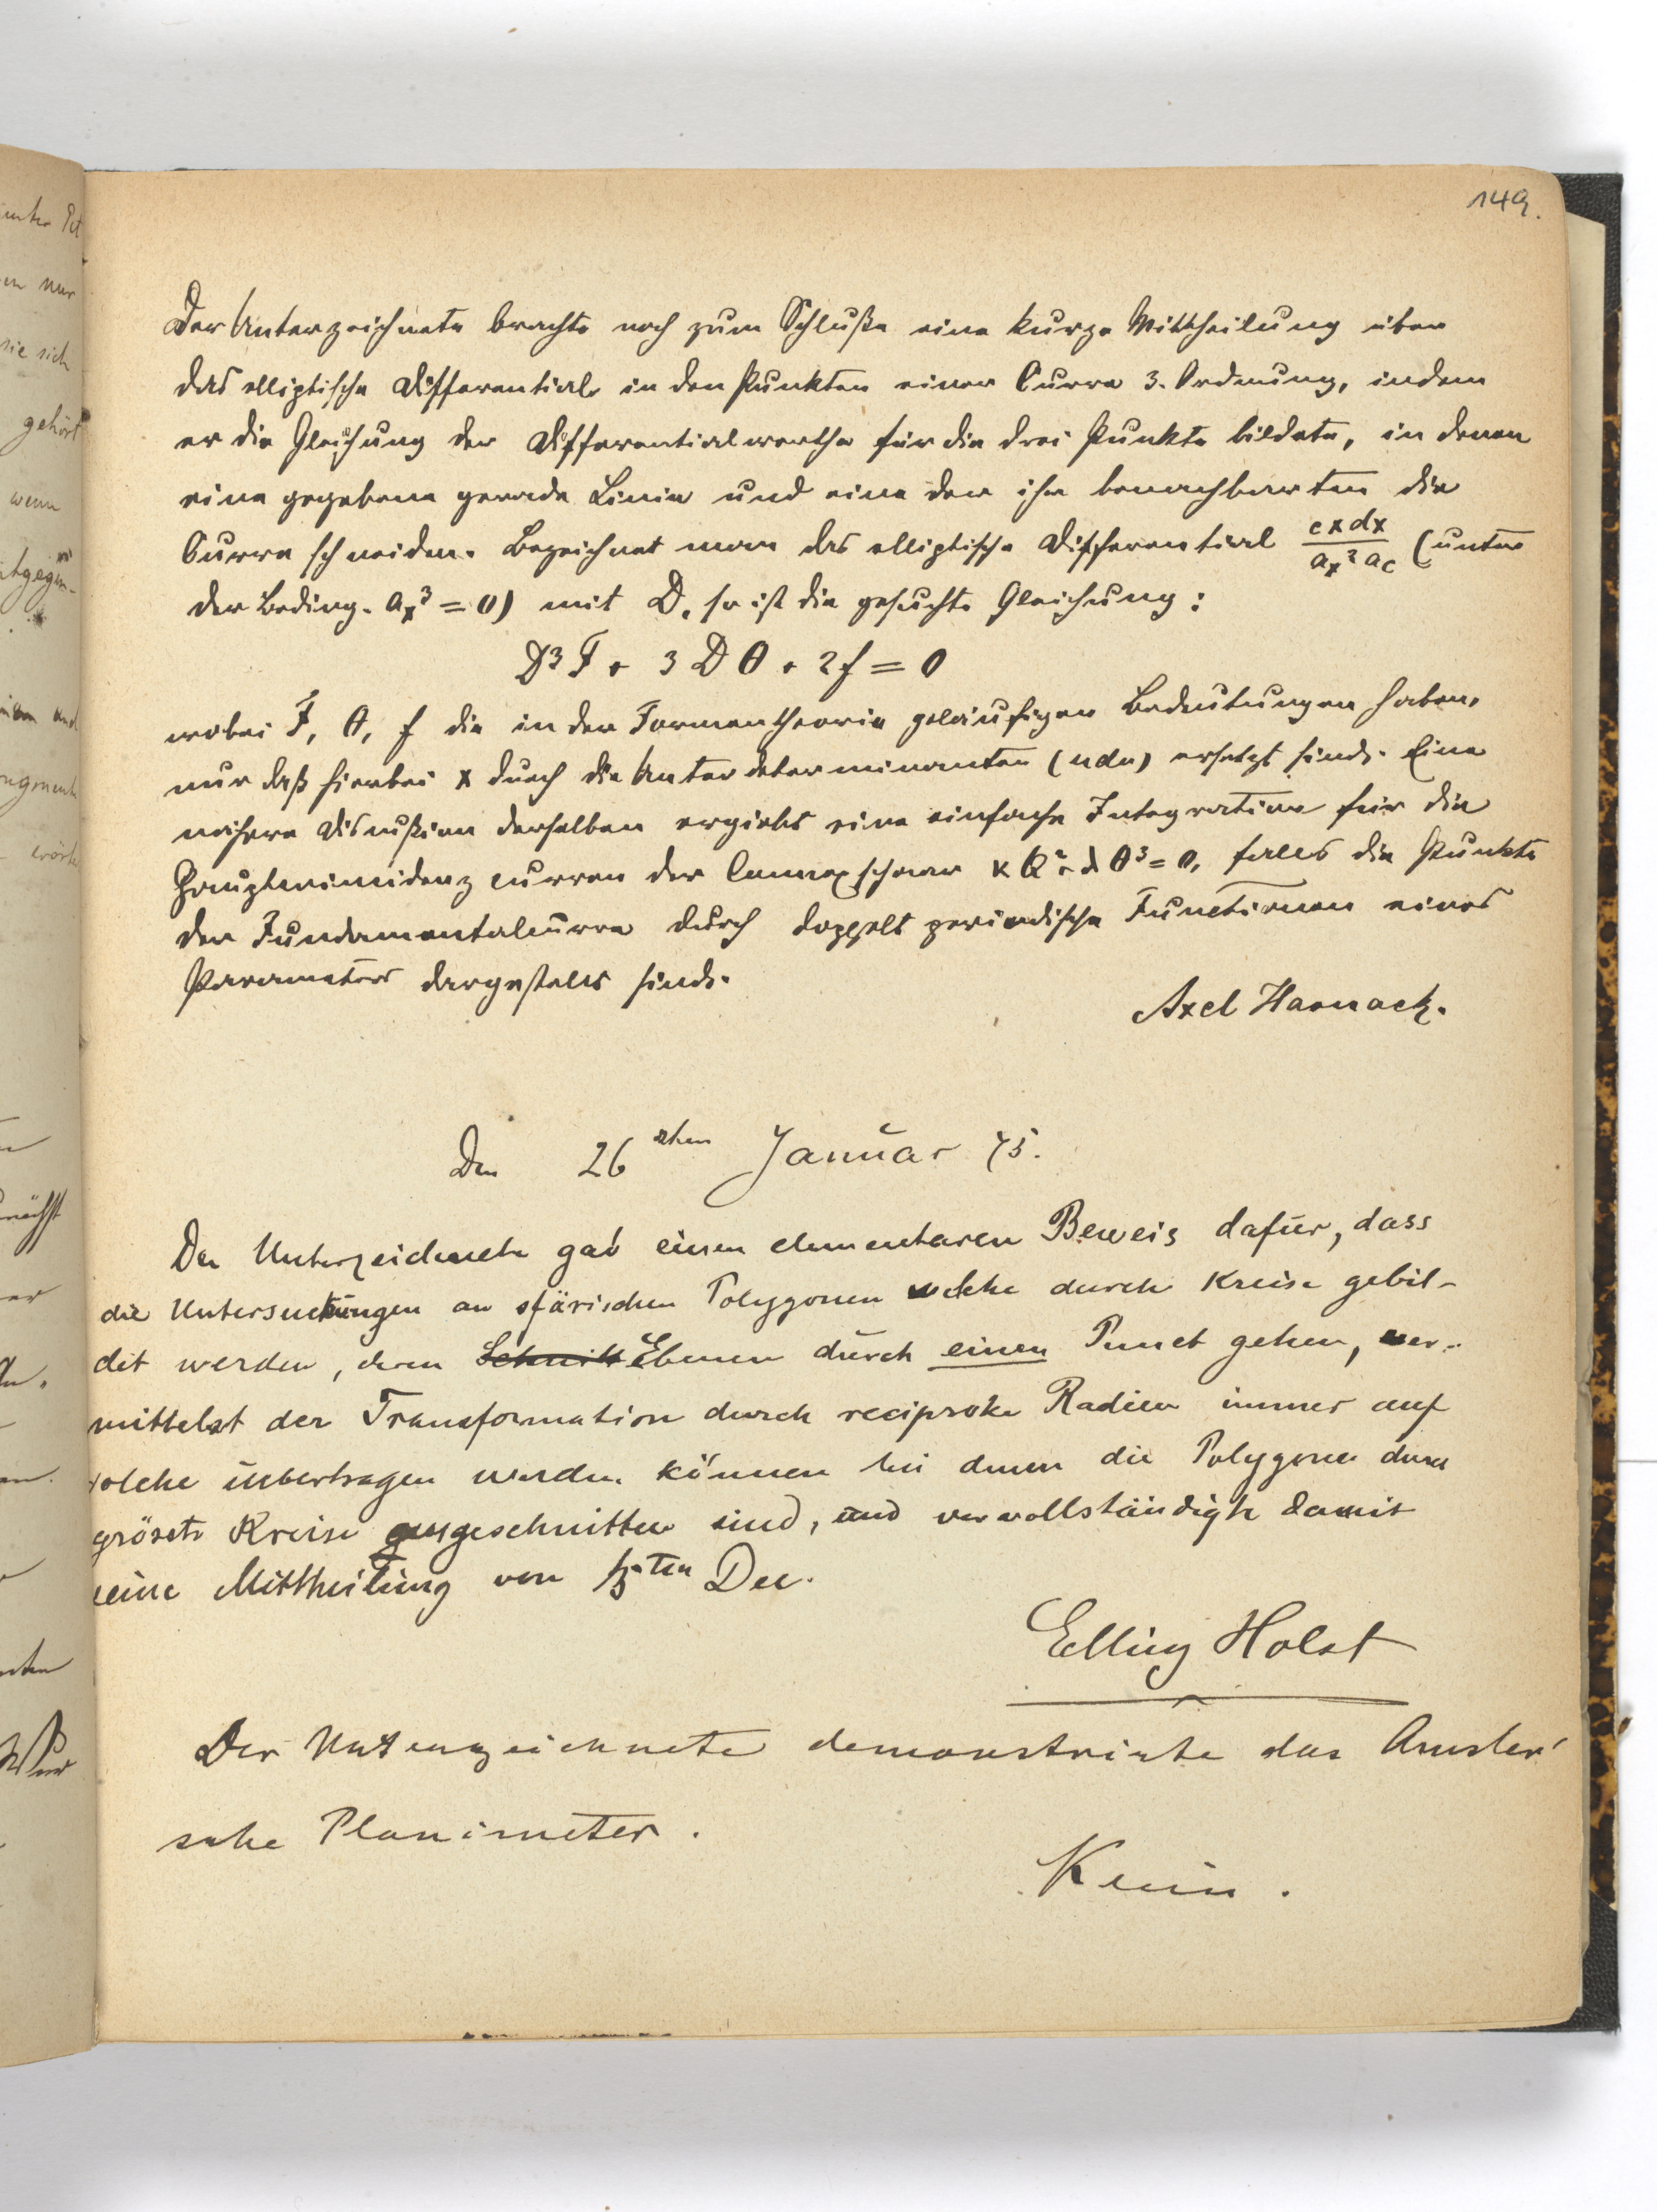 149.
Der Unterzeichnete brachte noch zum Schluße eine kurze Mittheilung über
das elliptische Differential in den Punkten einer Curve 3. Ordnung, indem
er die Gleichung der Differentialwerthe für die drei Punkte bildete, in denen
eine gegebene gerade Linie und eine der ihr benachbarten die
Curve schneiden. Bezeichnet man das elliptische Differential c x dx / a_x² a_c (unter
der Beding. a_x³ = 0) mit D, so ist die gesuchte Gleichung:
D³ F + 3 D θ + 2 f = 0
wobei F, θ, f die in der Formentheorie geläufigen Bedeutungen haben,
nur daß hierbei x durch die Unterdeterminanten (u du) ersetzt sind. Eine
nähere Discußion derselben ergiebt eine einfache Integration für die
Hauptcoincidenzcurven der Connexschaar κ Q² + λ θ³ = 0, falls die Punkte
der Fundamentalcurve durch doppelt periodische Functionen eines
Parameters dargestellt sind.
Axel Harnack.
Den 26sten Januar 75.
Der Unterzeichnete gab einen elementaren Beweis dafür, dass
die Untersuchungen an sfärischen Polygonen welche durch Kreise gebil-
det werden, deren Schnitt Ebenen durch einen Punct gehen, ver-
mittelst der Transformation durch reciproke Radien immer auf
solche übertragen werden können bei denen die Polygone durch
grösste Kreise ausgeschnitten sind, und vervollständigte damit
seine Mittheilung von ten Dec.
Elling Holst
Der Unterzeichnete demonstrirte das Amsler'
sche Planimeter.
Klein.
gehört
wenn
sie sich